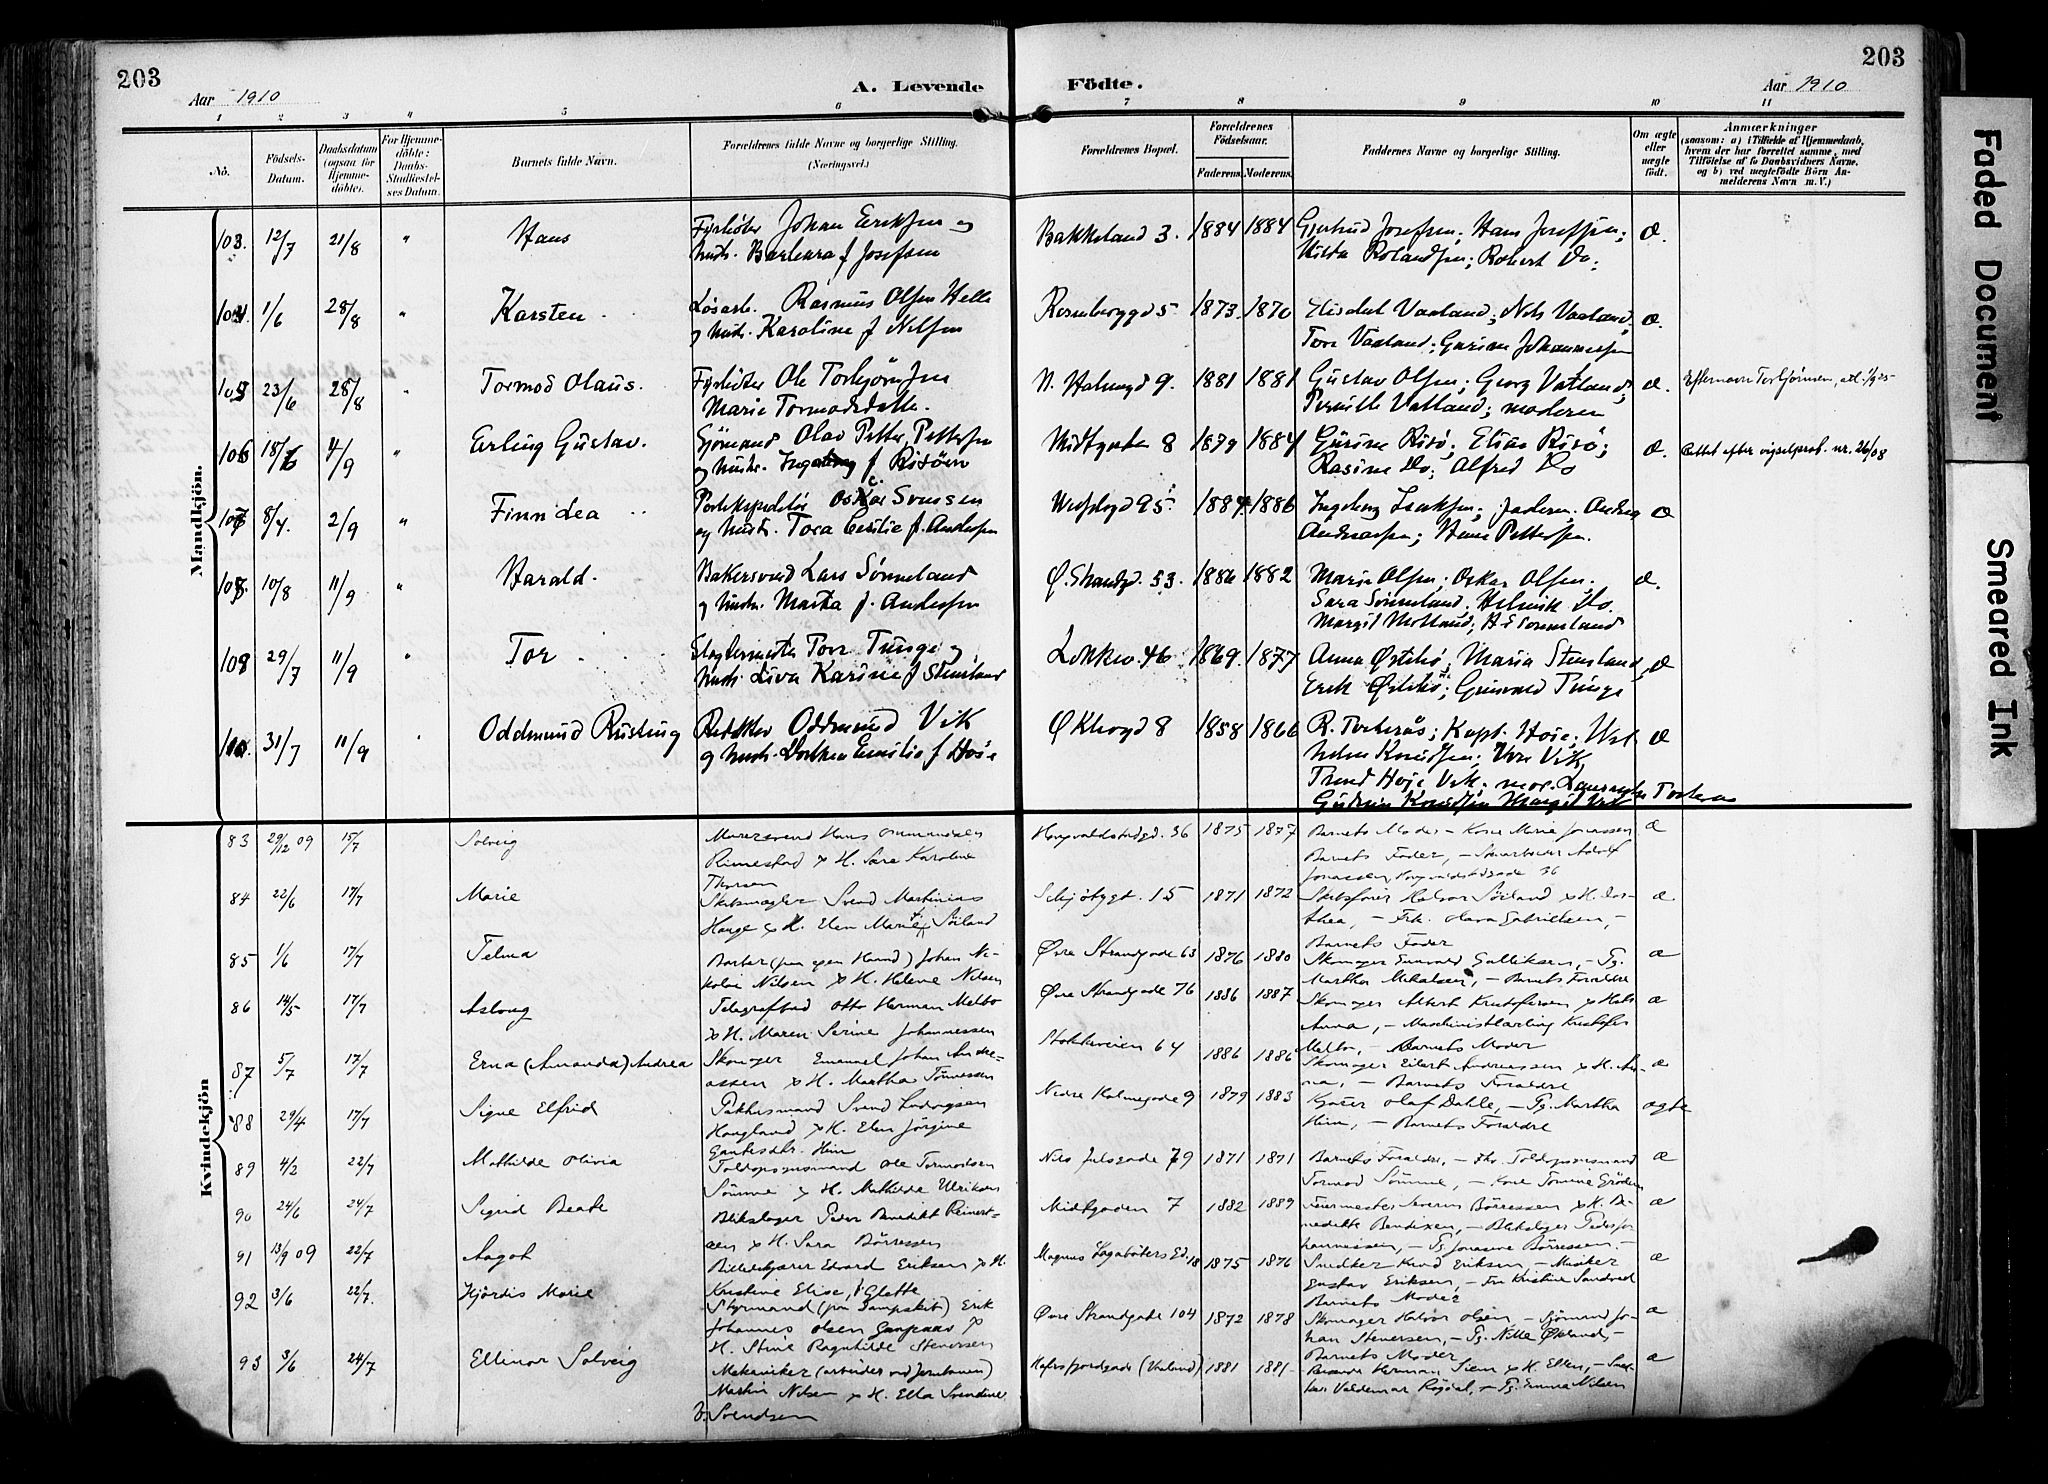 203
203
Aar 1910
A. Levende
Födte.
Aar 1910
1 2 3 4 5 6 7 8 9 10 11
No.
Födsels-
Datum.
Daabsdatum
(ogsaa for
Hjemme-
döbte).
For Hjemme-
döbte:
Daabs-
Stadfæstel-
ses Datum.
Barnets fulde Navn.
Forældrenes fulde Navne og borgerlige Stilling.
(Næringsvei.)
Forældrenes Bopæl.
Forældrenes
Födselsaar.
Faderens. Moderens.
Faddernes Navne og borgerlige Stilling.
Om ægte
eller
uægte
født.
Anmærkninger
(saasom: a) i Tilfælde af Hjemmedaab,
hvem der har forrettet samme, med
Tilföielse af to Daabsvidners Navne,
og b) ved uægtefödte Börn An-
melderens Navn m. V.)
Mandkjön.
103. 12/7 21/8 " Hans
Fyrbøter Johan Eriksen og
hustr. Barbara f Josefsen
Bakkeland 3. 1884 1884
Gjertrud Josefsen; Hans Josefsen;
Hilda Rolandsen; Robert Do;
æ.
104. 1/6 28/8 " Karsten
Løsarb. Rasmus Olsen Helle
og hustr. Karoline f Nilsen
Rosenberggd 5 1873. 1870
Elisabet Vaaland; Nils Vaaland.
Tore Vaaland; Gurine Johannessen
æ.
105 23/6 28/8 " Tormod Olaus.
Fyrbøter Ole Torbjørnsen
Marie Tormodsdatter.
N. Holmegd 9. 1881 1881
Gustav Olsen; Georg Vatland;
Pernille Vatland; moderen
æ. Efternavn Torbjørnsen,
106 18/6 4/9 " Erling Gustav.
Sjømand Olav Petter Pettersen
og hustr. Ingeborg f Risøen
Midtgaten 8 1879 1884
Gurine Risø; Elias Risø;
Rasine Do; Alfred Do
æ. Rettet efter vigselsprot. nr. 26/08
107 8/4. 2/9 " Finn Lea
Postekspeditør Oskar Svensen
og hustr. Tora Cecilie f. Andersen
95 1884 1886
Ingeborg Isaksen; faderen; Andreas
Andreassen; Hans Pettersen.
æ
10/8 11/9 " Harald.
Bakersvend Lars Sønneland
og hustr. Marta f. Andersen
Ø. Strandgd. 53. 1886 1882
Marie Olsen; Oskar Olsen.
Sara Sønneland; Helmik Do.
Margit
æ.
29/7 11/9 " Tor
Slagtermester Tore Tunge og
hustr. Liva Karine f Stensland
Løkkev. 46 1869. 1877
Anna Østebø; Maria Stensland
Erik Østebø; Gunvald Tunge
æ
31/7 11/9 Oddmund Rustung
Redaktør Oddmund Vik
og hustr. Dorthea Emilie f Høie
Ø Kleivgd 8 1858 1866
R. Torkerås; Kapt. Høie;
Knudsen; Vik,
Trond Høje Vik; mor. Torkeras
Gudrun Knudsen Margit Vik
æ
Kvindekjön
83 29/12 09 15/7 Solveig
Murersvend Hans Ommundsen
Rimestad & H. Sara Karoline
Thorsen
Haugvaldstadgd. 36 1875 1877
Barnets Moder - Kone Marie Jonassen
Barnets Fader, - Adolf
Jonassen, Haugvaldstadgade 36
æ
84 22/6 17/7 Marie
Skibsmægler Svend Martinius
Hauge & H. Elen Marie f. Sörland
Schjötzgt. 15 1871 1872
Skibsförer Halvor Sörland & H. Doro-
thea, - Frk. Olava Gabrielsen, -
Barnets Fader
æ
85 1/6 17/7 Telma
Barber (for egen Haand) Johan Ni-
kolai Nilsen & H. Helene Nilsen
Øvre Strandgade 63 1876 1880
Skomager Gunvald Gulliksen, - Pg.
Martha Mikalsen, - Barnets Forældre
æ
86 14/5 17/7 Aslaug
Telegrafbud Otto Herman Melbo
& H. Maren Serine Johannessen
Øvre Strandgade 76 1886 1887
Skomager Albert Kristofersen & H.
Anna, - Maskinistlærling Kristofer
Melbo, - Barnets Moder
æ
87 5/7 17/7 Erna (Amanda) Andrea
Skomager Emanuel Johan Andre-
assen & H. Martha Tönnessen
Stokkaveien 64 1886 1886
Skomager Eilert Andreassen & H. An-
na, - Barnets Forældre
æ
88 29/4 17/7 Signe Elfrid
Pakhusmand Svend Ludvigsen
Haugland & H. Elen Jörgine
Gautesdtr. Heim
Nedre Holmegade 9 1879 1883
Kjører Olaf Dahle, - Pg. Martha
Heim, - Barnets Forældre
ægte
89 4/2 22/7 Mathilde Olivia
Toldopsynsmand Ole Tormodsen
Sömme & H. Mathilde Ulriksen
Nils Juelsgade 79 1871 1871
Barnets Forældre, - Fhv. Toldopsynsmand
Tormod Sömme, - Kone Tomine Gröden
æ
90 24/6 24/7 Sigrid Beate
Blikslager Peder Benedikt Reinert-
sen & H. Sara Börresen
Midtgaden 7 1882 1889
Feiermester Severin Börresen & H. Be-
nedikte Bendixen, - Blikslager Peder Jo-
hannessen, - Pg. Jonasine Börresen. -
æ
91 13/9 09 22/7 Aagot
Billedskjærer Edvard Eriksen & H.
Kristine Elise, f. Glette
Magnus Lagabøters Gd. 18 1875 1876
Snedker Knud Eriksen, - Musiker
Gustav Eriksen, - Fru Kristine Sandved
Barnets Moder
æ
92 3/6 22/7. Hjördis Marie
Styrmand (paa Dampskib) Erik
Johannes Olsen Gaupaas &
H. Stine Ragnhilde Stenersen
Øvre Strandgade 104 1872 1878
Skomager Halvor Olsen, - Sjömand Jo-
han Stenersen, - Pg. Nille Økland, -
Barnets Moder
æ
93 3/6 24/7 Ellinor Solveig
Mekaniker (arbeider ved Jernbanen)
Martin Nilsen & H. Ella Svendine
f. Svendsen
Hafrsfjordgade (Vaaland) 1881 1881
Herman Siem & H. Ellen, -
Valdemar Rögdal, - Pg. Emma Nilsen
æ
Faded Document
Smeared Ink